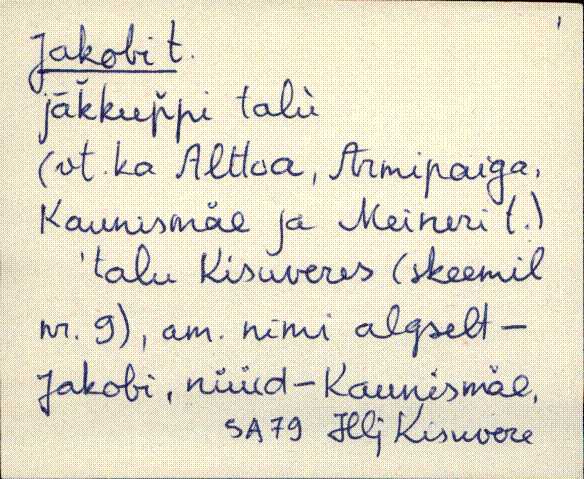 Jakobi t.
jăkkup̆pi talù
(vt. ka Alttoa, Armipaiga,
Kaunismäe ja Meineri t.)
'talu Kisuveres (skeemil
nr. 9), am. nimi algselt –
Jakobi, nüüd – Kaunismäe,
SA79 Hlj Kisuvere